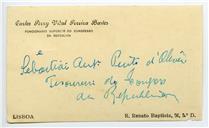 Carlos Perry Vidal Pereira Bastos
FUNCIONÁRIO SUPERIOR DO CONGRESSO
DA REPÚBLICA
e
Sebastião Antº Pinto d'Oliveira
Tesoureiro do Congresso
da República
LISBOA
R. Renato Baptista, 5º D.